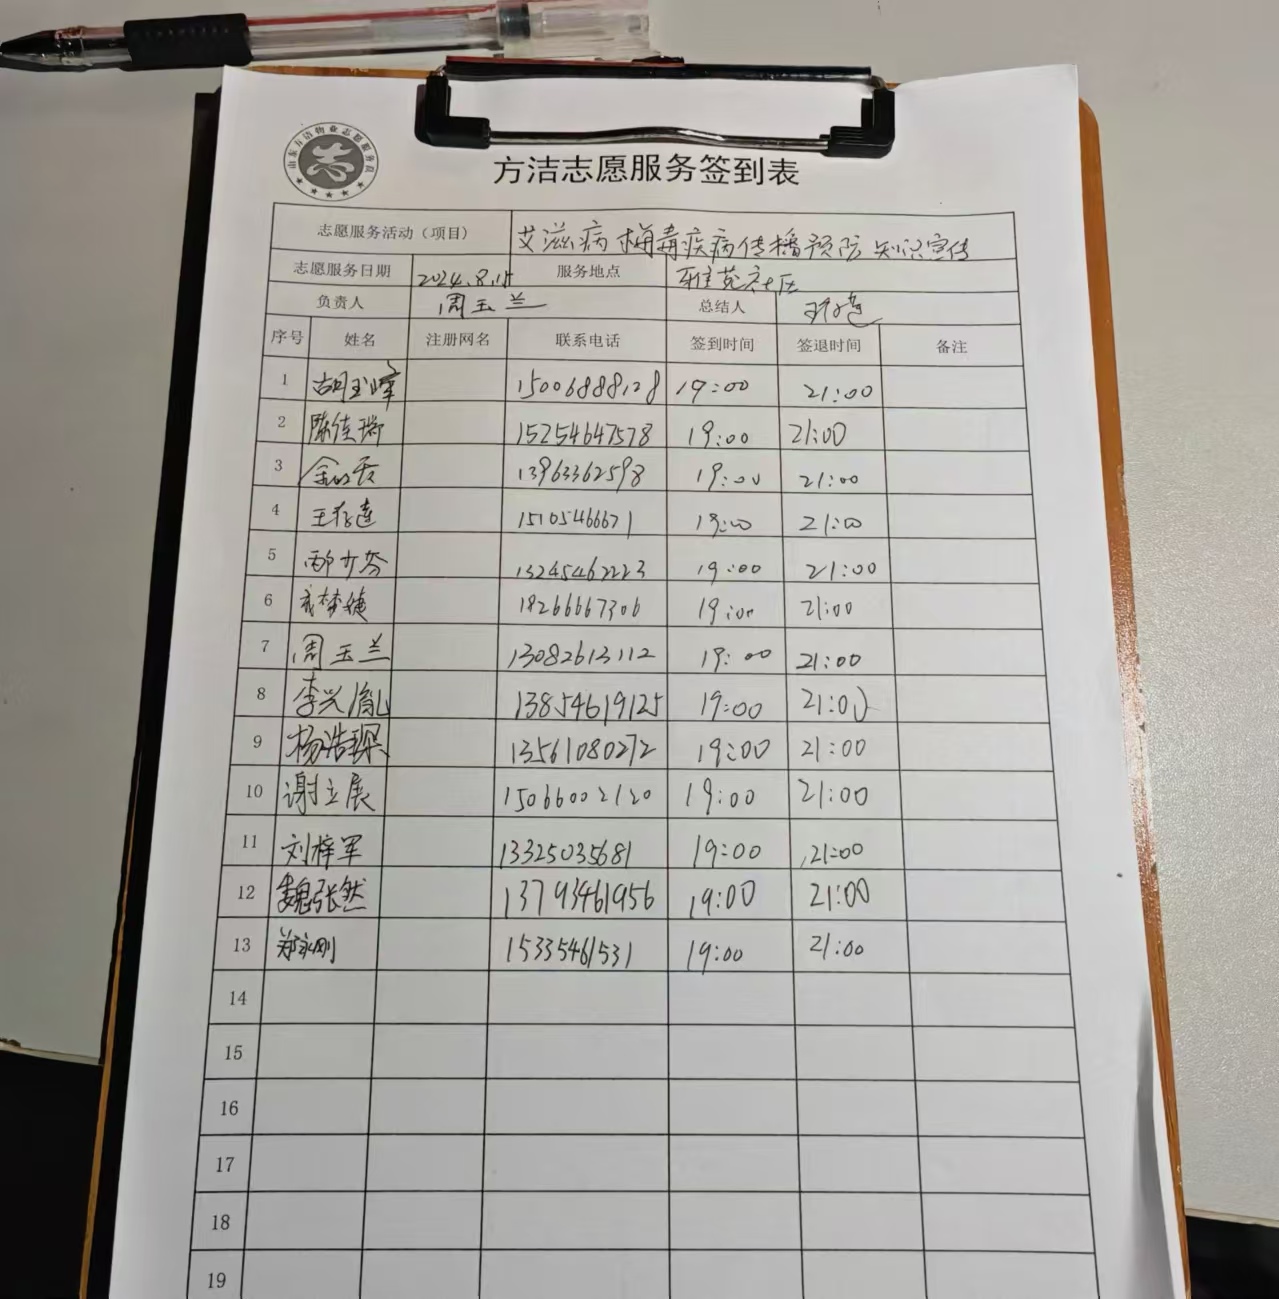 山东方洁物业志愿服务队
志
方洁志愿服务签到表
志愿服务活动（项目） 艾滋病 梅毒疾病传播预防 知识宣传
志愿服务日期 2024.8.15 服务地点 雅苑社区
负责人 周玉兰 总结人
序号 姓名 注册网名 联系电话 签到时间 签退时间 备注
1 胡玉峰 15006888128 19:00 21:00
2 陈佳瑞 15254647578 19:00 21:00
3 13963362598 19:00 21:00
4 15105466671 19:00 21:00
5 13245462223 19:00 21:00
6 18266667306 19:00 21:00
7 周玉兰 13082613112 19:00 21:00
8 李兴胤 13854619125 19:00 21:00
9 杨浩琛 13561080272 19:00 21:00
10 谢立展 15066002120 19:00 21:00
11 刘梓军 13325035681 19:00 21:00
12 魏张然 13793461956 19:00 21:00
13 郑永刚 15335461531 19:00 21:00
14
15
16
17
18
19